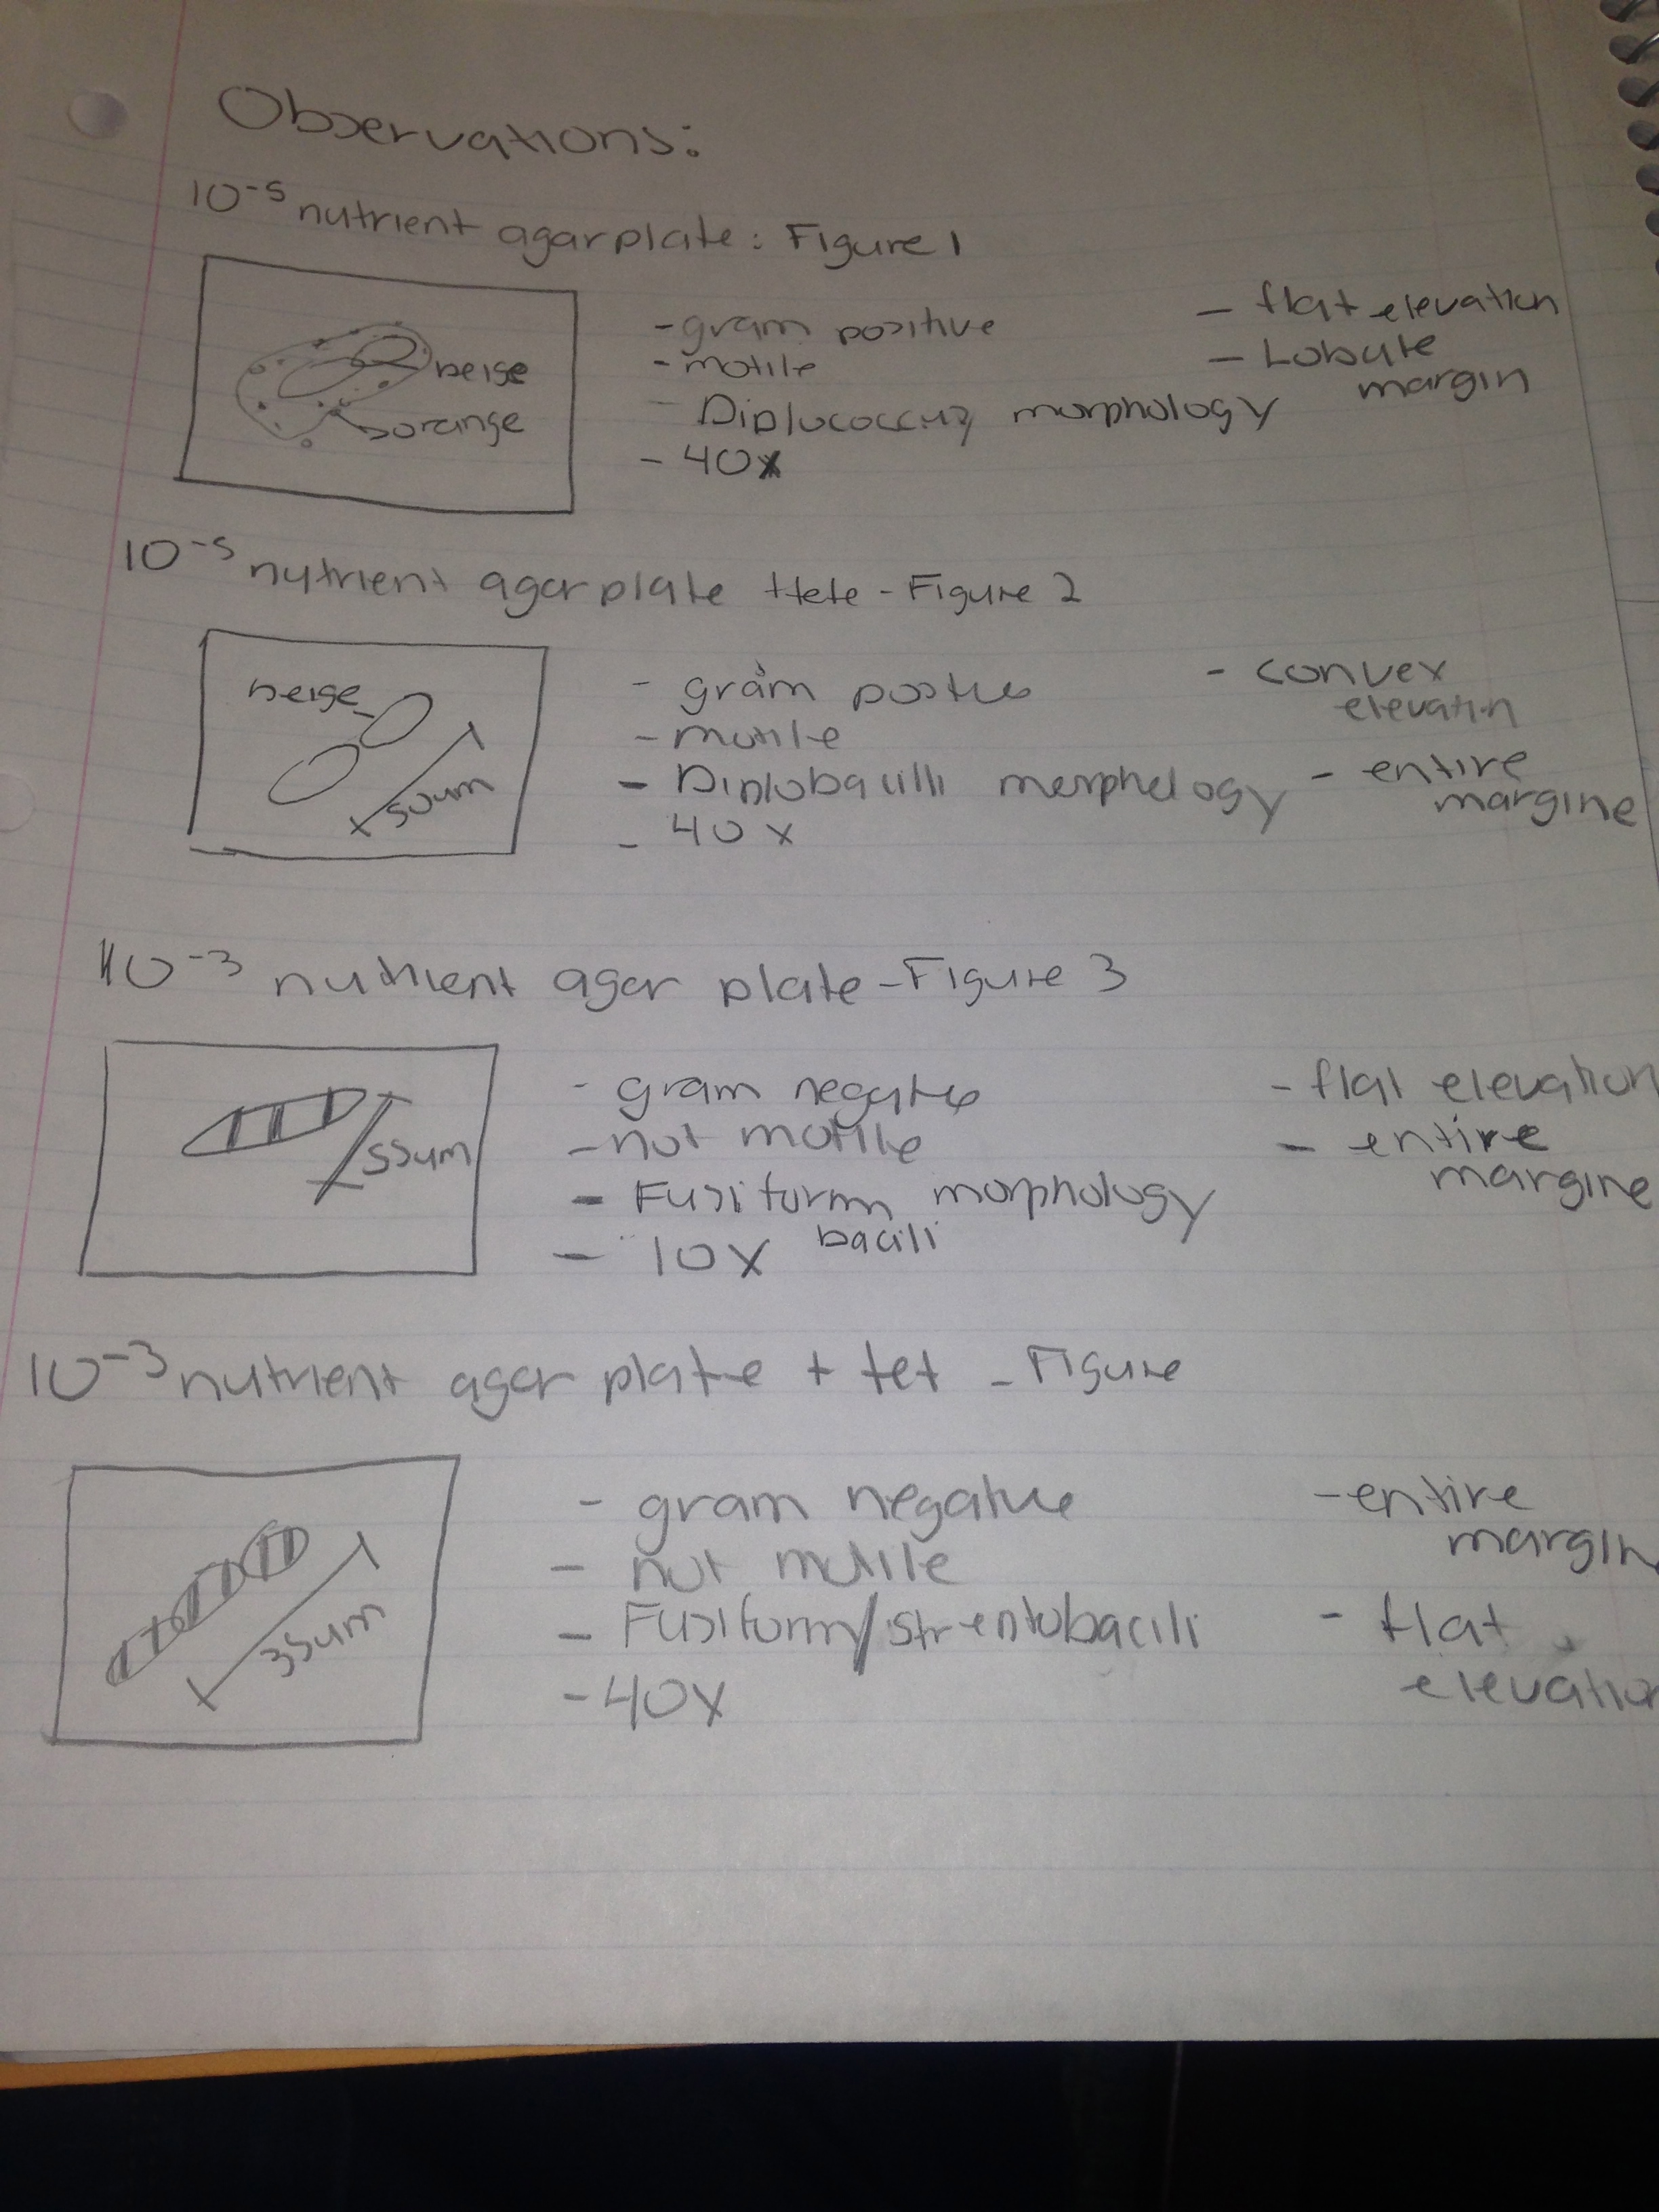 Observations:
10⁻⁵ nutrient agar plate: Figure 1
beige
orange
- gram positive
- motile
- Diplococcus morphology
- 40x
- flat elevation
- Lobate
margin
10⁻⁵ nutrient agar plate +tete - Figure 2
beige
50um
- gram positive
- motile
- Diplobacilli morphology
- 40x
- convex
elevation
- entire
margine
10⁻³ nutrient agar plate - Figure 3
55um
- gram negative
- not motile
- Fusiform morphology
bacili
- 10x
- flat elevation
- entire
margine
10⁻³ nutrient agar plate + tet - Figure
35um
- gram negative
- not motile
- Fusiform/streptobacilli
- 40x
- entire
margin
- flat
elevation